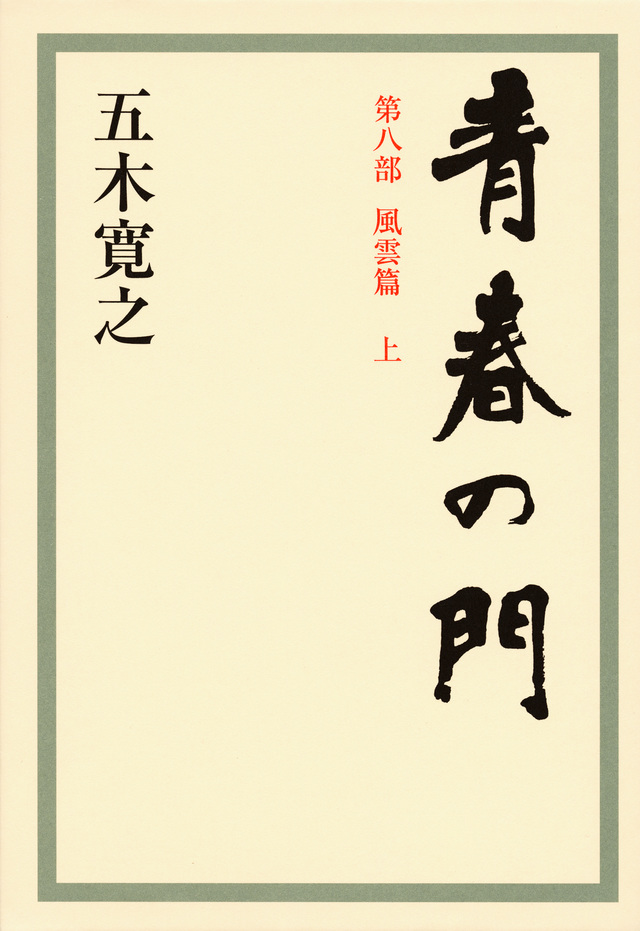 青春の門
第八部 風雲篇 上
五木寛之